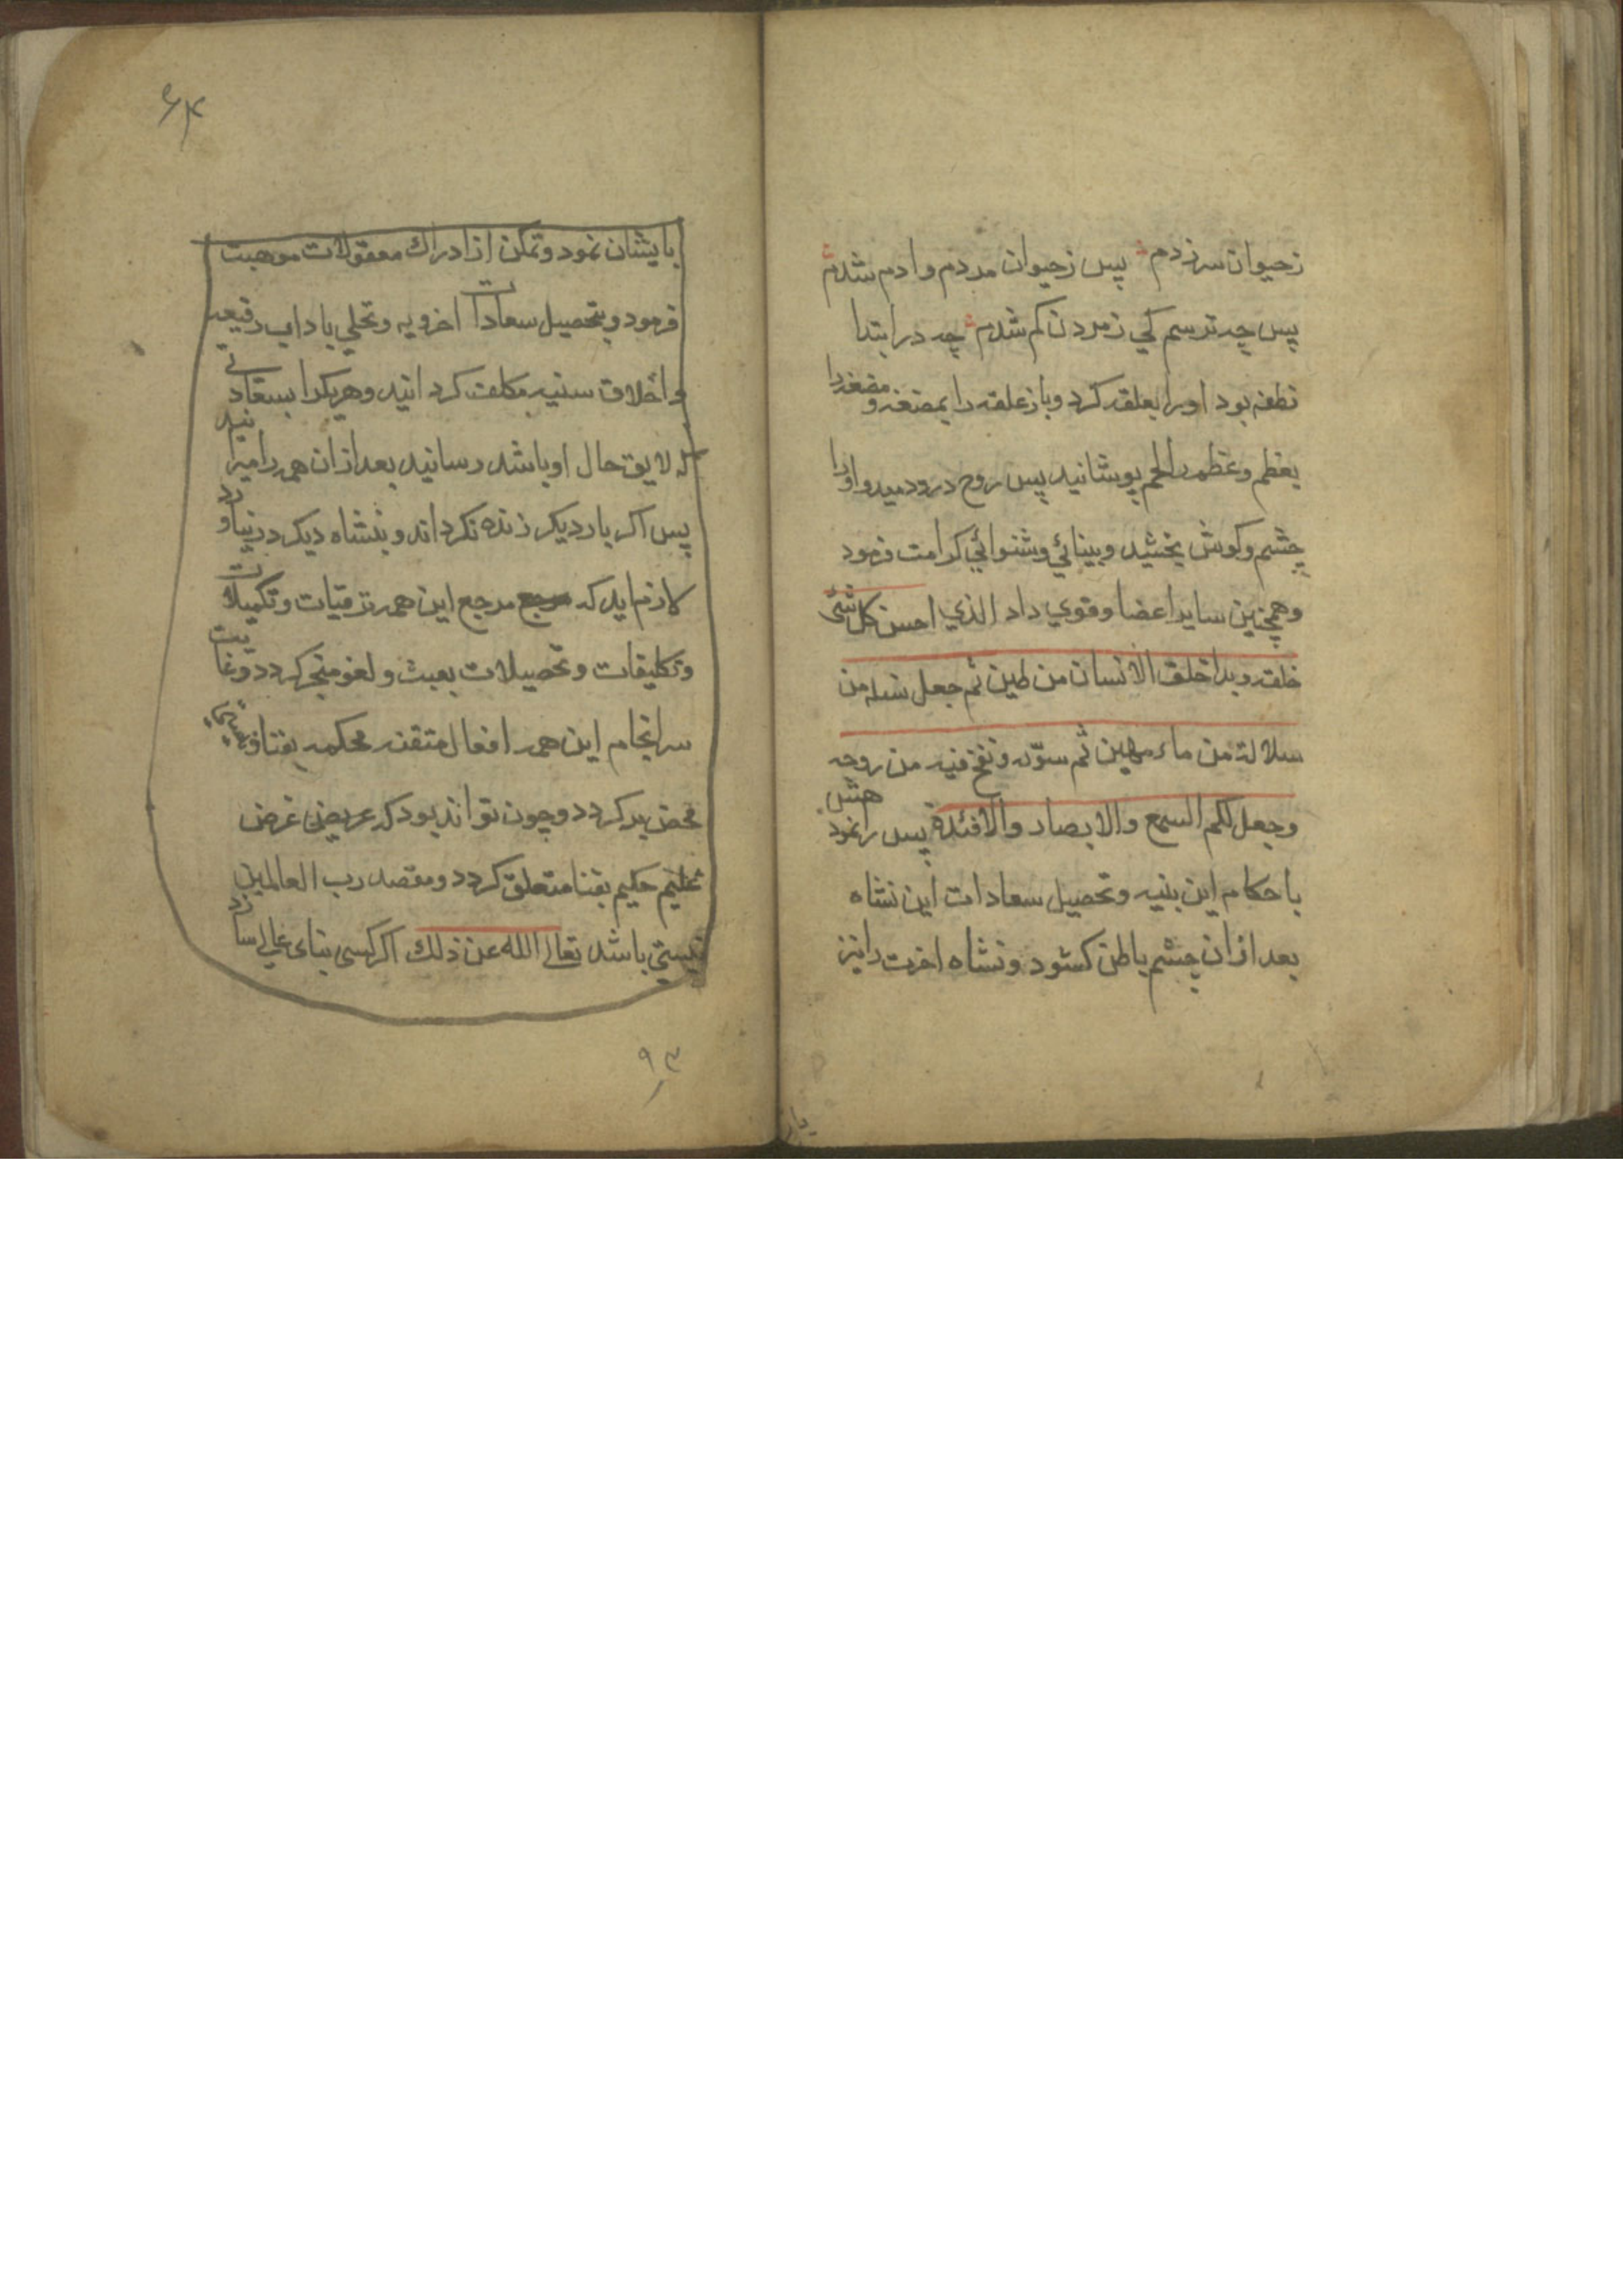 زحیوان سرزدم پس زحیوان مردم وادم شدم
پس چه ترسم کي زمردن کم شدم چه در ابتدا
نطفه بود اورا بعلقه کرد وباز علقه را بمضغه و مضغه را
بعظم وعظم را لحم پوشانید پس روح درو دمید و اورا
چشم وکوش بخشید وبینائي وشنوائي کرامت فرمود
وهمچنین سایر اعضا وقوي داد الذي احسن کل شئ
خلقه وبدا خلق الانسان من طین ثم جعل نسله من
سلالة من ماء مهین ثم سوّه ونفخ فیه من روحه
وجعل لکم السمع والابصار والافئدة پس راهنمود
باحکام این بنیه وتحصیل سعادات این نشاه
بعد ازان چشم باطن کشود ونشاه اخرت را نیز
۶۴
بایشان نمود وتمکن از ادراك معقولات موهبت
فرمود وبتحصیل سعادات اخرویه وتحلي باداب رفیعه
واخلاق سنیه مکلف کردانید وهریکرا بسعادتي
که لایق حال او باشد رسانید بعد ازان همه را میرانید
پس اکر بار دیکر زنده نکرداند وبنشاه دیکر در نیاورد
لازم اید که مرجع این همه ترقیات وتکمیلات
وتکلیفات وتحصیلات بعبث ولغو منجر کردد وغایت
سرانجام این همه افعال متقنه محکمه بفنا و
محض بد کردد وچون تواند بود که غرض
حکیم بفنا متعلق کردد ومقصد رب العالمین
نیستي باشد تعالی الله عن ذلك اکر کسی بناء عالي سازد
۹۳